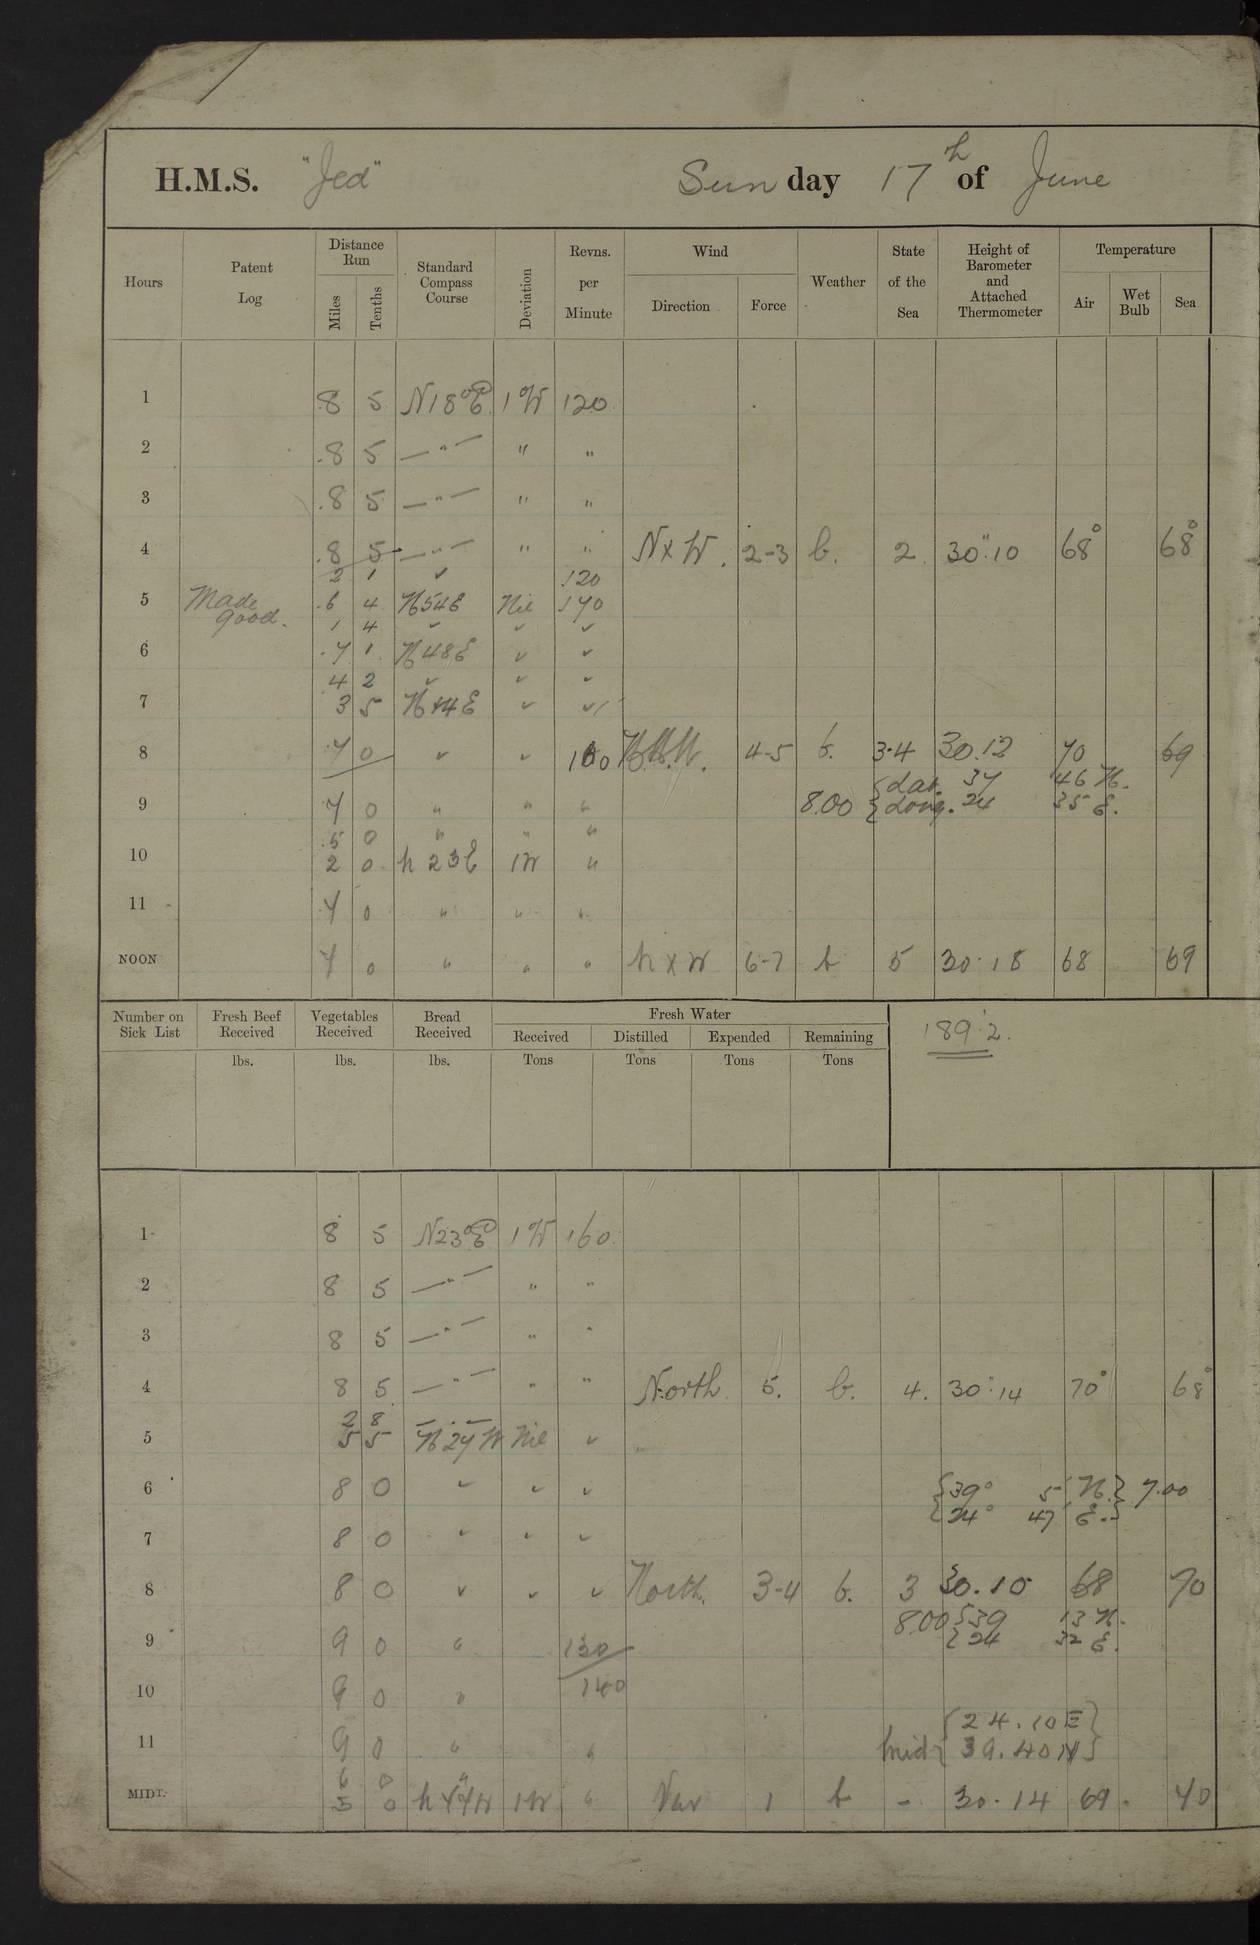 H.M.S. "Jed" Sunday 17th of June
Hours Patent Log Distance Run Miles Tenths Standard Compass Course Deviation Revns. per Minute Wind Direction Force Weather State of the Sea Height of Barometer and Attached Thermometer Temperature Air Wet Bulb Sea
1 8 5 N18°E 1°W 120
2 8 5 —"— " "
3 8 5 —"— " "
4 8 5 —"— " " N x W. 2-3 b. 2 30".10 68° 68°
2 1 ✓ 120
5 Made good. 6 4 N54E Nil 140
1 4 ✓ ✓ ✓
6 7 1 N48E ✓ ✓
4 2 ✓ ✓ ✓
7 3 5 N44E ✓ ✓
8 7 0 ✓ ✓ 160 4-5 b. 3.4 30.12 70 69
{Lat. 37 46 N.
9 7 0 " " " 8.00 {Long. 24 35 E.
5 0 " " "
10 2 0 N 23 E 1W "
11 7 0 " " "
NOON 7 0 " " " N x W 6-7 b 5 30.18 68 69
Number on Sick List Fresh Beef Received Vegetables Received Bread Received Fresh Water
Received Distilled Expended Remaining 189.2.
lbs. lbs. lbs. Tons Tons Tons Tons
1 8 5 N23°E 1°W 160
2 8 5 —"— " "
3 8 5 —"— " "
4 8 5 —"— " " North 5. b. 4. 30.14 70° 68°
2 8 —"—
5 5 5 N27W Nil ✓
6 8 0 ✓ ✓ ✓ {39° 5' N.} 7.00
{24° 47 E.}
7 8 0 ✓ ✓ ✓
8 8 0 ✓ ✓ ✓ North. 3-4 b. 3 30.10 68 70
8.00 {39 13 N.
9 9 0 " 130 {24 32 E.
10 9 0 " 140
{24.10E}
11 9 0 " " Mid {39.40N}
6 0 "
MIDT. 3 0 1W " Var 1 b - 30.14 69. 70